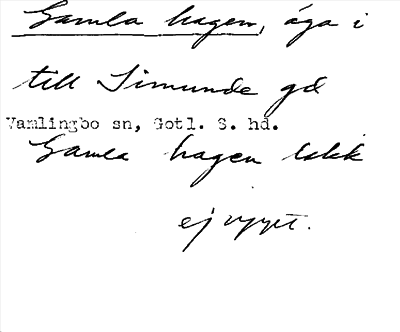 Gamla hagen, äga i
till Simunde gd
Vamlingbo sn, Gotl. S. hd.
Gamla hagen
ej uppt.